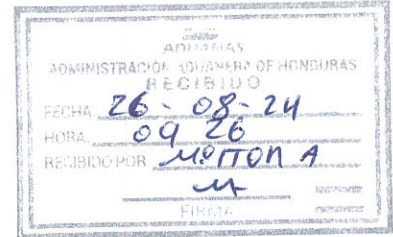 ADUANAS
ADMINISTRACIÓN ADUANERA DE HONDURAS
RECIBIDO
FECHA 26-08-24
HORA 09 26
RECIBIDO POR Milton A
FIRMA